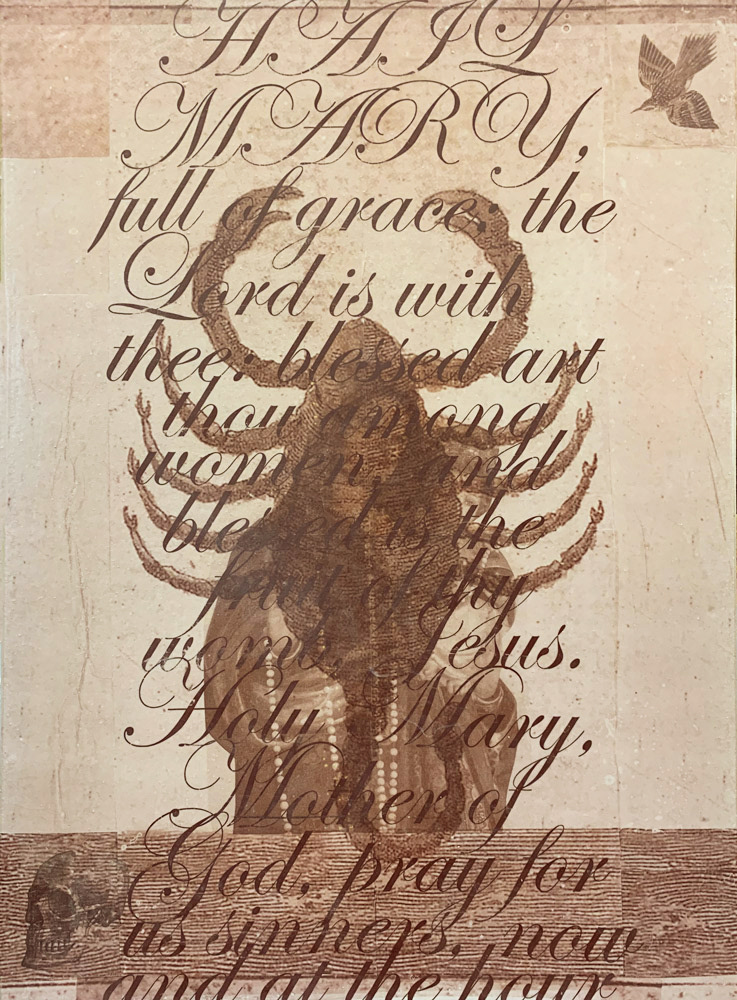 HAIL
MARY,
full of grace; the
Lord is with
thee: blessed art
thou among
women, and
blessed is the
fruit of thy
womb, Jesus.
Holy Mary,
Mother of
God, pray for
us sinners, now
and at the hour